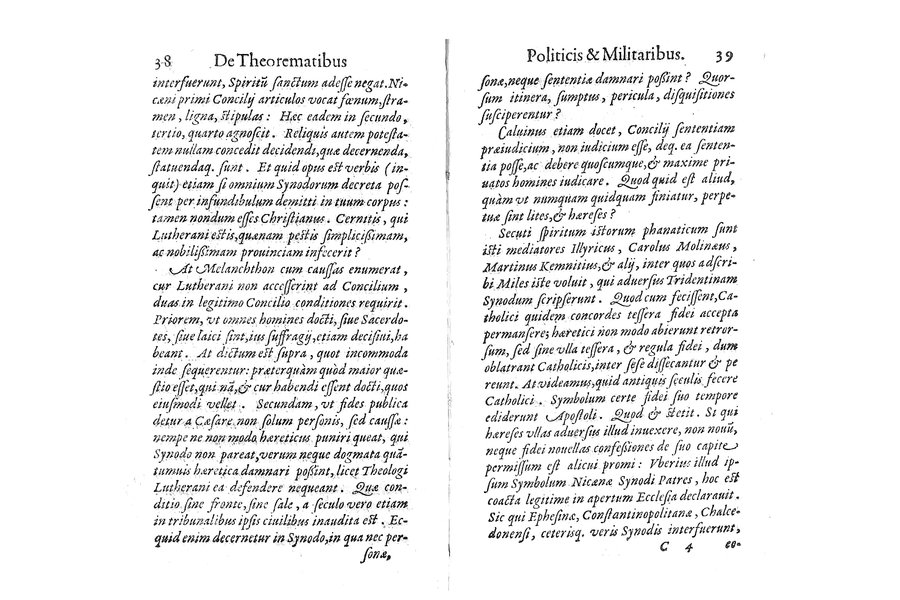 38 De Theorematibus
interfuerunt, Spiritũ sanctum adesse negat. Ni-
cæni primi Concilij articulos vocat fœnum, stra-
men, ligna, stipulas: Hæc eadem in secundo,
tertio, quarto agnoscit. Reliquis autem potesta-
tem nullam concedit decidendi, quæ decernenda,
statuendaq. sunt. Et quid opus est verbis (in-
quit) etiam si omnium Synodorum decreta pos-
sent per infundibulum demitti in tuum corpus:
tamen nondum esses Christianus. Cernitis, qui
Lutherani estis, quænam pestis simplicissimam,
ac nobilissimam prouinciam infecerit?
At Melanchthon cum caussas enumerat,
cur Lutherani non accesserint ad Concilium,
duas in legitimo Concilio conditiones requirit.
Priorem, vt omnes homines docti, siue Sacerdo-
tes, siue laici sint, ius suffragij, etiam decisiui, ha
beant. At dictum est supra, quot incommoda
inde sequerentur: præterquàm quòd maior quæ-
stio esset, qui nã, & cur habendi essent docti, quos
eiusmodi vellet. Secundam, vt fides publica
detur a Cæsare non solum personis, sed caussæ:
nempe ne non modo hæreticus puniri queat, qui
Synodo non pareat, verum neque dogmata quã-
tumuis hæretica damnari possint, licet Theologi
Lutherani ea defendere nequeant. Quæ con-
ditio sine fronte, sine sale, a seculo vero etiam
in tribunalibus ipsis ciuilibus inaudita est. Ec-
quid enim decernetur in Synodo, in qua nec per-
sonæ,
Politicis & Militaribus. 39
sonæ, neque sententiæ damnari possint? Quor-
sum itinera, sumptus, pericula, disquisitiones
susciperentur?
Caluinus etiam docet, Concilij sententiam
præiudicium, non iudicium esse, deq. ea senten-
tia posse, ac debere quoscumque, & maxime pri-
uatos homines iudicare. Quod quid est aliud,
quàm vt numquam quidquam finiatur, perpe-
tuæ sint lites, & hæreses?
Secuti spiritum istorum phanaticum sunt
isti mediatores Illyricus, Carolus Molinæus,
Martinus Kemnitius, & alij, inter quos adscri-
bi Miles iste voluit, qui aduersus Tridentinam
Synodum scripserunt. Quod cum fecissent, Ca-
tholici quidem concordes tessera fidei accepta
permansere; hæretici non modo abierunt retror-
sum, sed sine vlla tessera, & regula fidei, dum
oblatrant Catholicis, inter sese dissecantur & pe
reunt. At videamus, quid antiquis seculis fecere
Catholici. Symbolum certe fidei suo tempore
ediderunt Apostoli. Quod & stetit. Si qui
hæreses vllas aduersus illud inuexere, non nouũ,
neque fidei nouellas confessiones de suo capite
permissum est alicui promi: Vberius illud ip-
sum Symbolum Nicænæ Synodi Patres, hoc est
coacta legitime in apertum Ecclesia declarauit.
Sic qui Ephesinæ, Constantinopolitanæ, Chalce-
donensi, ceterisq. veris Synodis interfuerunt,
C 4 eo-